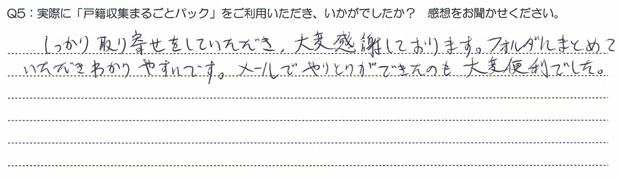 Q5：実際に「戸籍収集まるごとパック」をご利用いただき、いかがでしたか？ 感想をお聞かせください。
しっかり取り寄せをしていただき、大変感謝しております。フォルダにまとめて
いただきわかりやすいです。メールでやりとりができたのも大変便利でした。